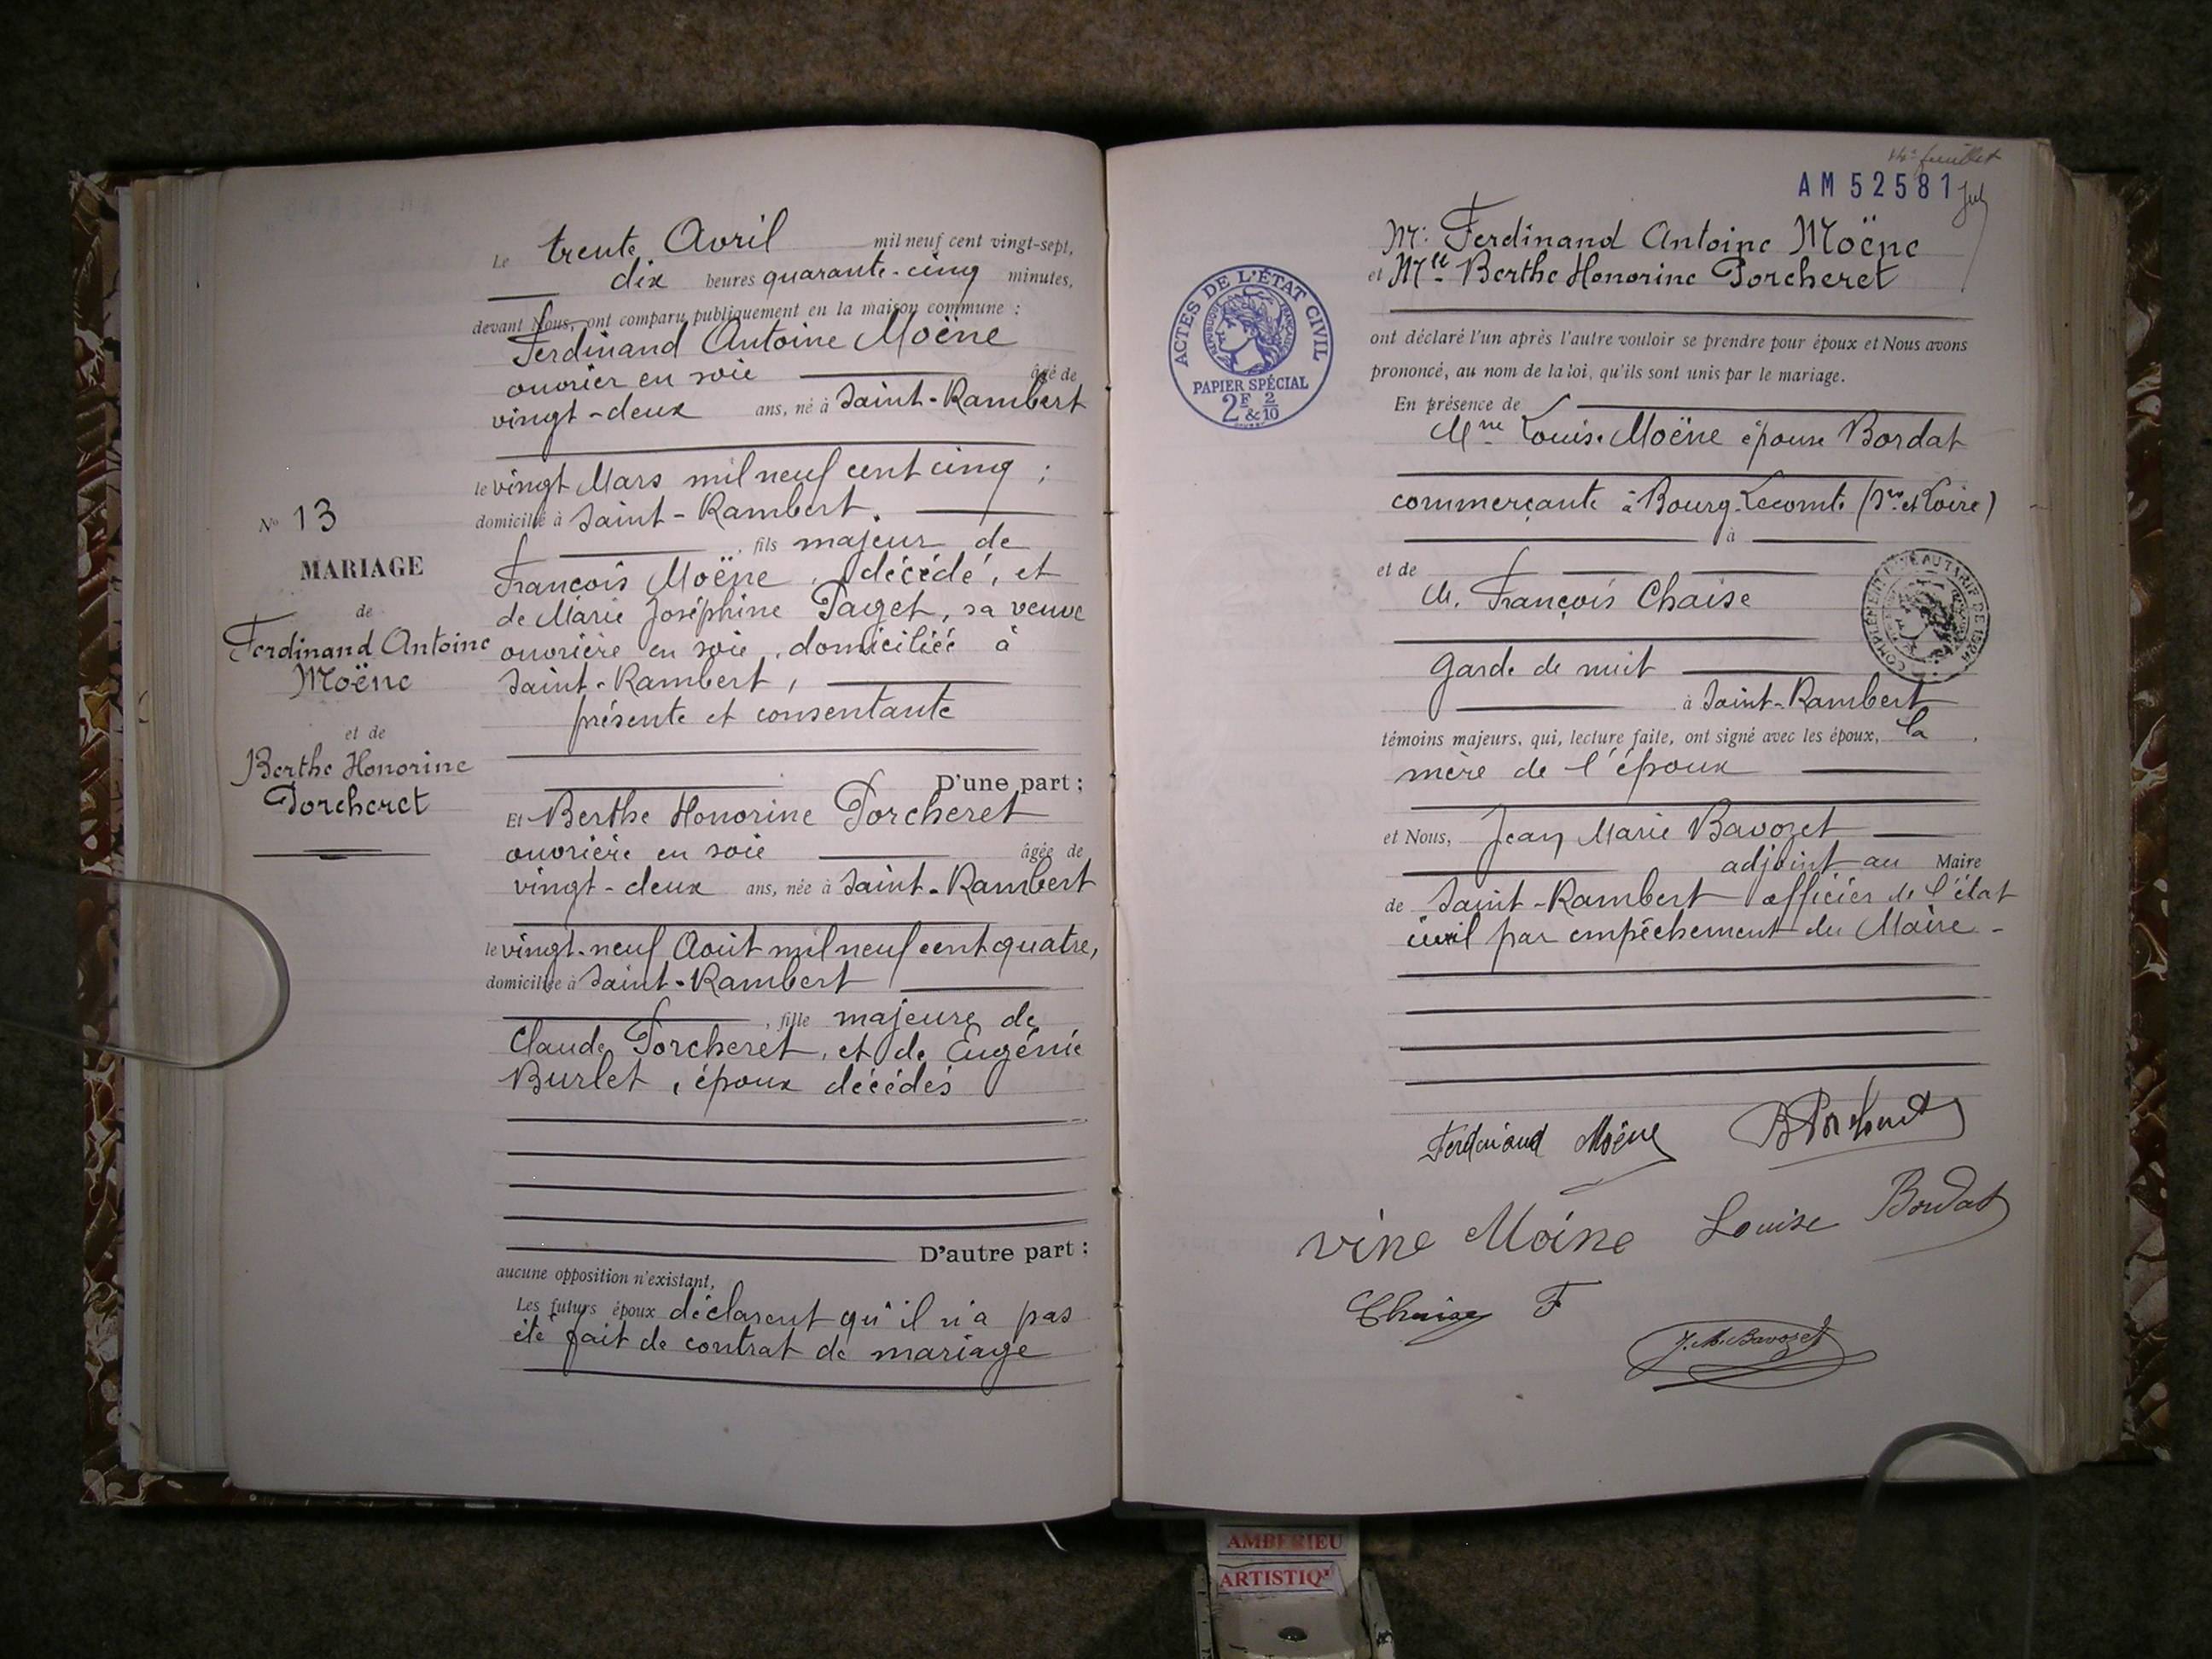 Le trente Avril mil neuf cent vingt-sept,
dix heures quarante-cinq minutes,
devant Nous, ont comparu publiquement en la maison commune :
Ferdinand Antoine Moëne
ouvrier en soie âgé de
vingt-deux ans, né à Saint-Rambert
le vingt Mars mil neuf cent cinq ;
domicilié à Saint-Rambert.
, fils majeur de
François Moëne, décédé, et
de Marie Joséphine Paget, sa veuve
ouvrière en soie, domiciliée à
Saint-Rambert,
présente et consentante
D'une part ;
Et Berthe Honorine Porcheret
ouvrière en soie âgée de
vingt-deux ans, née à Saint-Rambert
le vingt-neuf Août mil neuf cent quatre,
domiciliée à Saint-Rambert
, fille majeure de
Claude Porcheret, et de Eugénie
Burlet, époux décédés
D'autre part ;
aucune opposition n'existant,
Les futurs époux déclarent qu'il n'a pas
été fait de contrat de mariage
No 13
MARIAGE
de
Ferdinand Antoine
Moëne
et de
Berthe Honorine
Porcheret
14e feuillet
AM 52581
Mr. Ferdinand Antoine Moëne
et Mlle Berthe Honorine Porcheret
ont déclaré l'un après l'autre vouloir se prendre pour époux et Nous avons
prononcé, au nom de la loi, qu'ils sont unis par le mariage.
En présence de
Mme Louise Moëne épouse Bordat
commerçante à Bourg-Lecomte (Sne et Loire)
à
et de
M. François Chaise
Garde de nuit
à Saint-Rambert
témoins majeurs, qui, lecture faite, ont signé avec les époux, la
mère de l'époux
et Nous, Jean Marie Bavozet
adjoint au Maire
de Saint-Rambert officier de l'état
civil par empêchement du Maire -
Ferdinand Moëne B Porcheret
vve Moëne Louise Bordat
Chaise F
J. M. Bavozet
ACTES DE L'ÉTAT CIVIL
RÉPUBLIQUE FRANÇAISE
PAPIER SPÉCIAL
2F & 2/10
AMBERIEU
ARTISTIQ